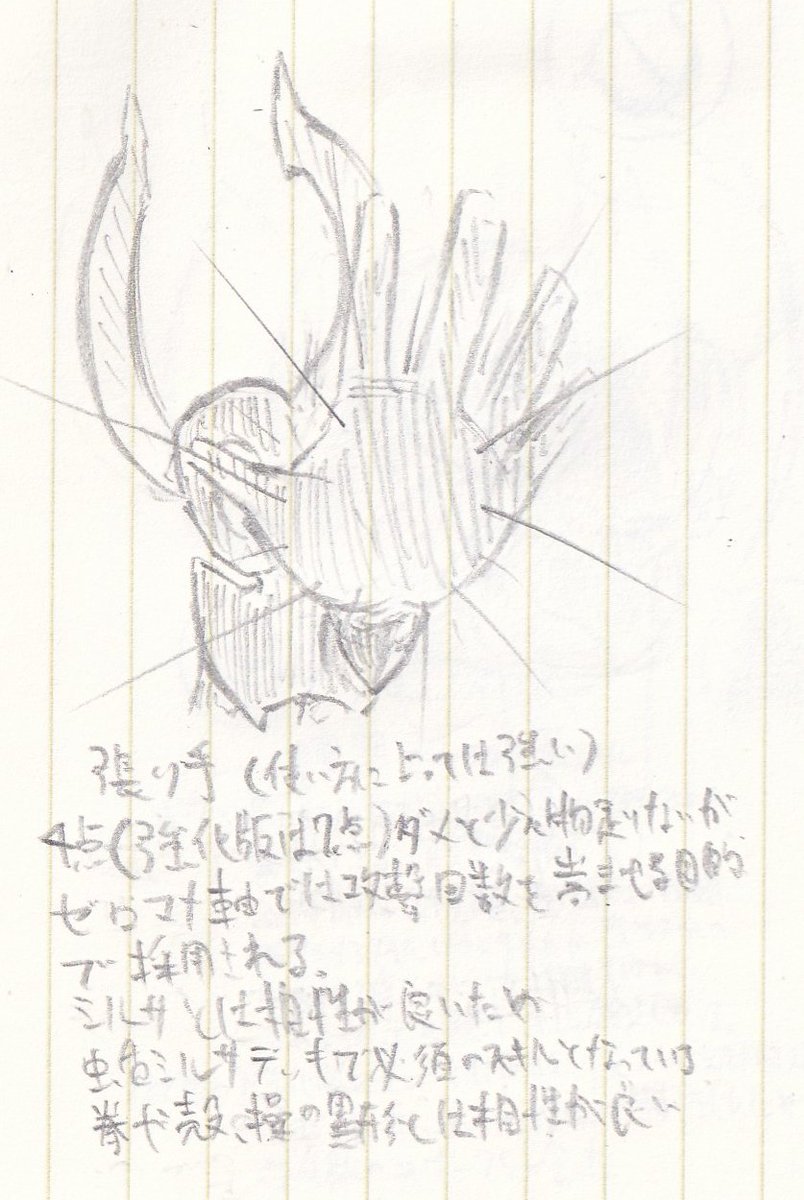 張り手 (使い方に上っては強い)
4点(強化版は7点)ダメと少々物足りないが
ゼロコスト軸では攻撃回数を嵩ませる目的
で採用される。
ミルサとは相性が良いため
虫色ミルサデッキで必須のスキルとなっている
拳や殻、操の異形とは相性が良い